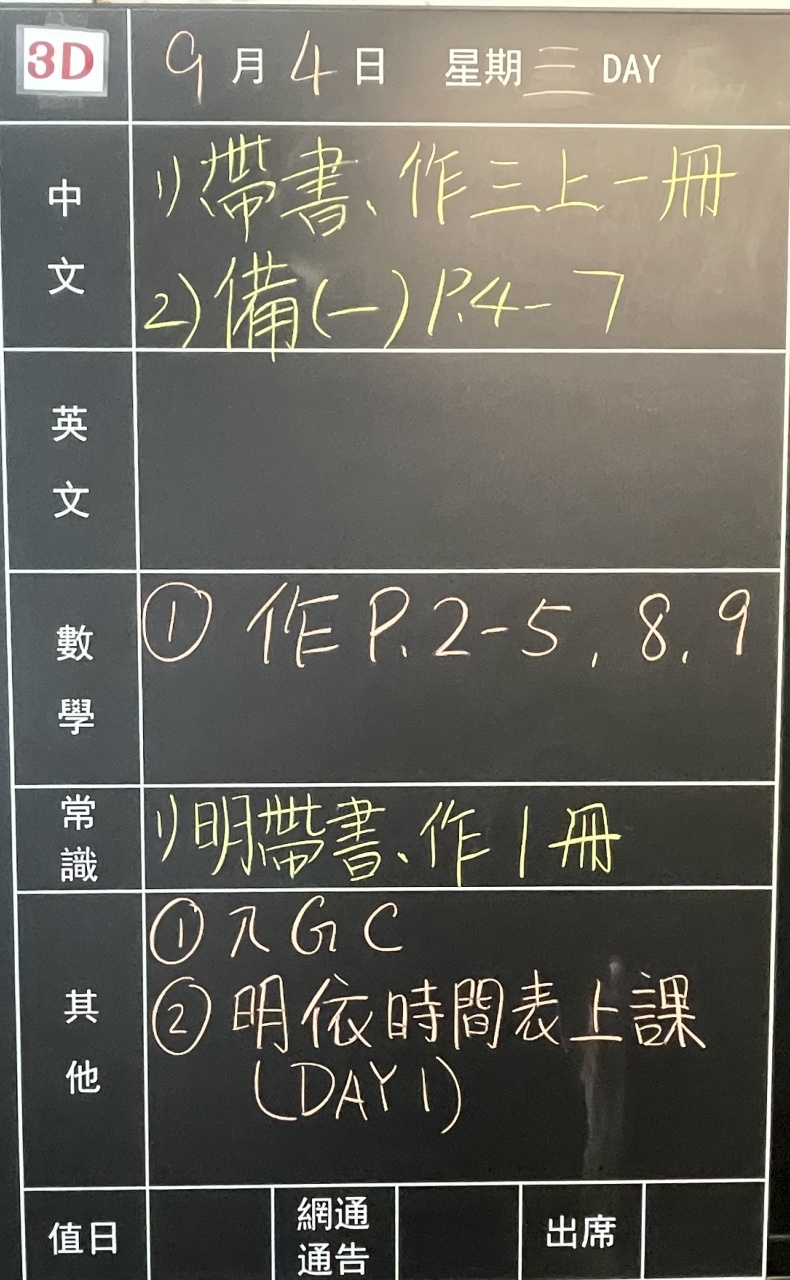 3D 9月4日 星期三 DAY
中文
1) 帶書、作三上一冊
2) 備(一) P.4-7
英文
數學
① 作 P.2-5, 8, 9
常識
1) 明帶書、作1冊
其他
① πGC
② 明依時間表上課
(DAY 1)
值日 網通通告 出席